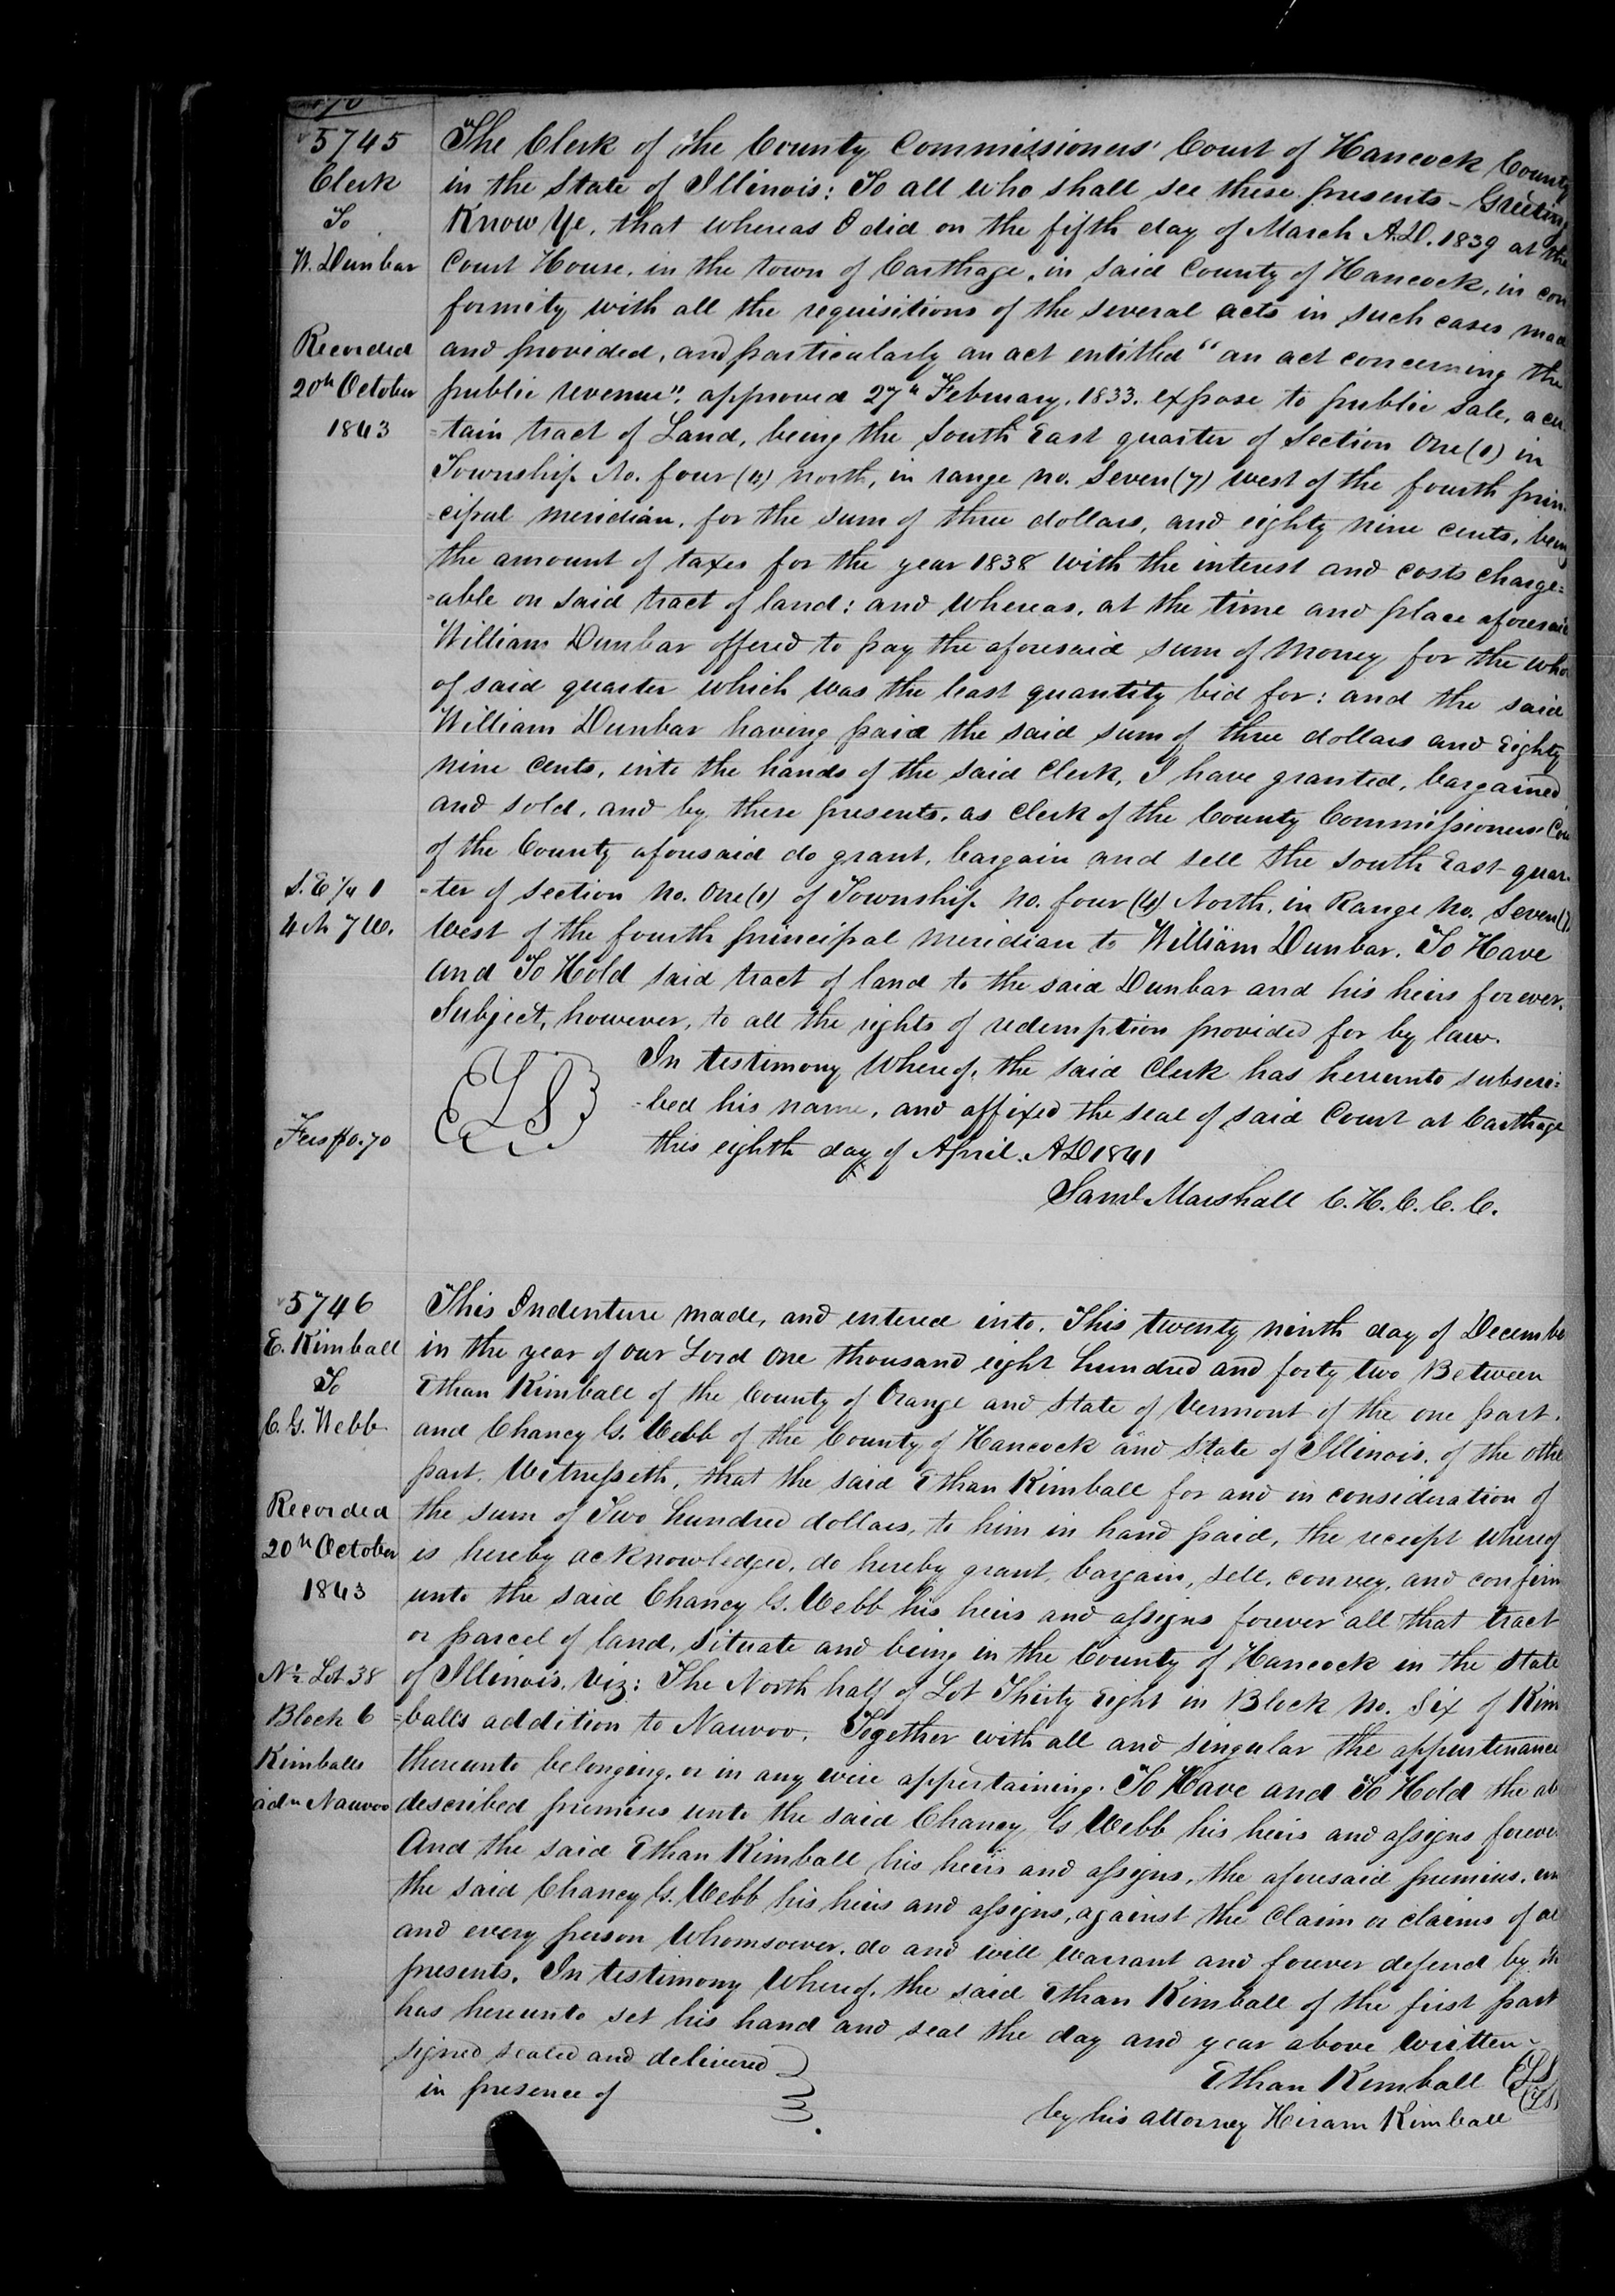 5745
Clerk
To
W. Dunbar
Recorded
20th October
1843
S. E 1/4 1
4 N 7 W.
Fees $0.70
The Clerk of the County Commissioners' Court of Hancock County
in the State of Illinois: To all who shall see these presents - Greeting
Know Ye, that whereas I did on the fifth day of March A.D. 1839 at the
Court House, in the town of Carthage, in said County of Hancock, in con
formity with all the requisitions of the several acts in such cases made
and provided, and particularly an act entitled "an act concerning the
public revenue", approved 27th February, 1833. expose to public sale, a cer
=tain tract of Land, being the South East quarter of Section One (1) in
Township No. four (4) north, in range no. Seven (7) west of the fourth prin
=cipal meridian, for the sum of three dollars, and eighty nine cents, being
the amount of taxes for the year 1838 with the interest and costs charge=
=able on said tract of land: and whereas, at the time and place aforesaid
William Dunbar offered to pay the aforesaid sum of money for the whole
of said quarter which was the least quantity bid for: and the said
William Dunbar having paid the said sum of three dollars and Eighty
nine cents, into the hands of the said Clerk, I have granted, bargained
and sold, and by these presents, as Clerk of the County Commissioners' Cou
of the County aforesaid do grant, bargain and sell the South East quar
=ter of section No. One (1) of Township No. four (4) North, in Range No. Seven (7)
West of the fourth principal meridian to William Dunbar. To Have
and To Hold said tract of land to the said Dunbar and his heirs forever.
Subject, however, to all the rights of redemption provided for by law.
In testimony Whereof, the said Clerk has hereunto subscri=
LS
=bed his name, and affixed the seal of said Court at Carthage
this eighth day of April. AD 1841
Saml Marshall C. H. C. C. C.
5746
E. Kimball
To
C. G. Webb
Recorded
20th October
1843
N 1/2 Lot 38
Block 6
Kimballs
adn Nauvoo
This Indenture made, and entered into, This twenty ninth day of Decembe
in the year of our Lord One thousand eight hundred and forty two Between
Ethan Kimball of the County of Orange and State of Vermont of the one part,
and Chancy G. Webb of the County of Hancock and State of Illinois, of the othe
part. Witnesseth, that the said Ethan Kimball for and in consideration of
the sum of Two hundred dollars, to him in hand paid, the receipt whereof
is hereby acknowledged, do hereby grant, bargain, sell, convey, and confirm
unto the said Chancy G. Webb his heirs and assigns forever all that tract
or parcel of land, situate and being in the County of Hancock in the State
of Illinois, viz: The North half of Lot Thirty Eight in Block No. Six of Kim
=balls addition to Nauvoo. Together with all and singular the appurtenance
thereunto belonging, or in any wise appertaining. To Have and To Hold the ab
described premises unto the said Chancy G Webb his heirs and assigns forever
And the said Ethan Kimball his heirs and assigns, the aforesaid premises, un
the said Chancy G. Webb his heirs and assigns, against the Claim or claims of al
and every person Whomsoever, do and will warrant and forever defend by th
presents. In testimony Whereof, the said Ethan Kimball of the first part
has hereunto set his hand and seal the day and year above written
Signed sealed and delivered
in presence of
Ethan Kimball LS
by his attorney Hiram Kimball LS